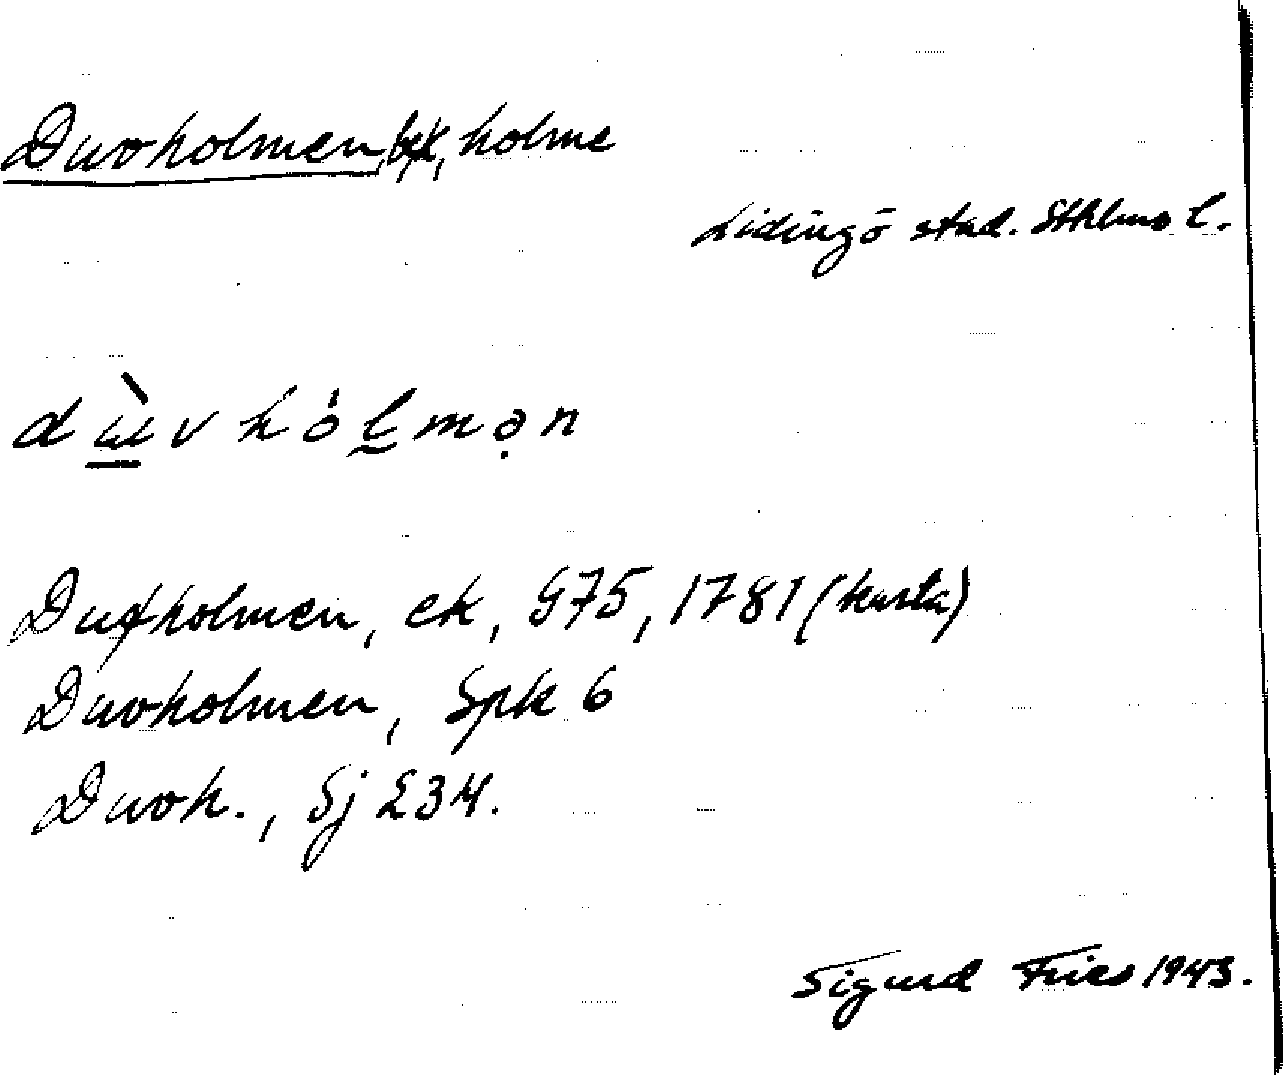 Duvholmen, holme
Lidingö stad. Sthlms l.
d ὼ v h ó l̰ m ə̣ n
Dufholmen, ek, G75, 1781 (karta)
Duvholmen, Spk 6
Duvh., Sj 234.
Sigurd Fries 1943.